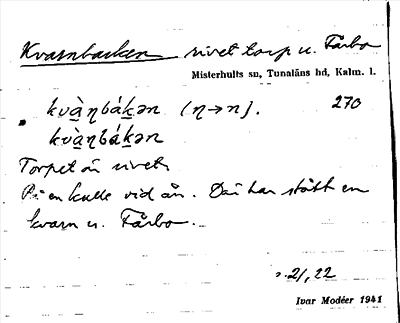 Kvarnbacken rivet torp u. Fårbo
Misterhults sn, Tunaläns hd, Kalm. l.
kvà̱ŋbáḵən (ŋ→n). 270
kvà̱ŋbáḵən
Torpet är rivet.
På en kulle vid ån. Där har stått en
kvarn u. Fårbo.
s. 21, 22
Ivar Modéer 1941